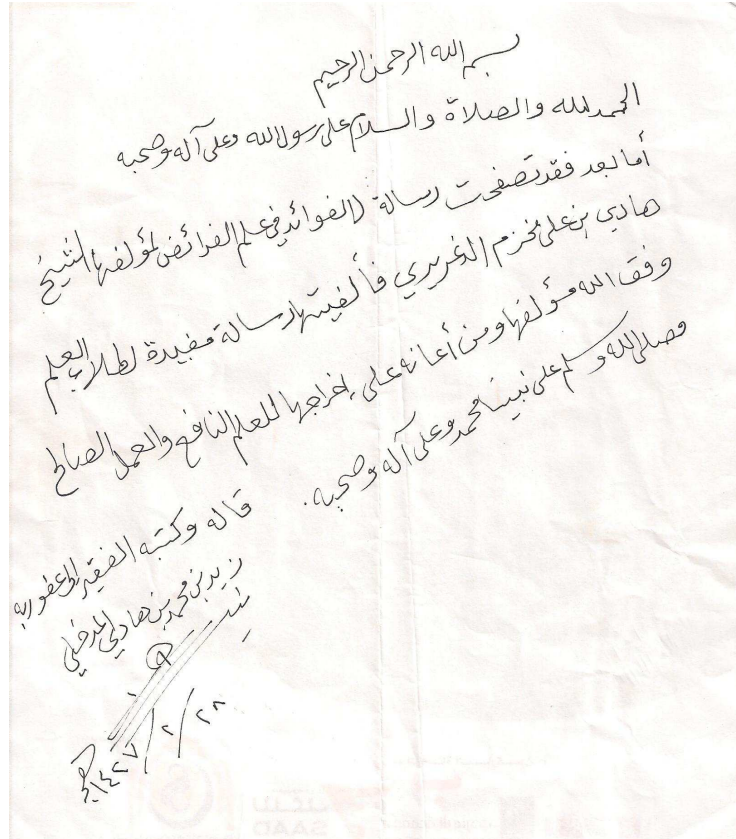 بسم الله الرحمن الرحيم
الحمد لله والصلاة والسلام على رسول الله وعلى آله وصحبه
أما بعد فقد تصفحت رسالة (الفوائد في علم الفرائض لمؤلفها الشيخ
هادي بن علي مخزم الغريري فألفيتها رسالة مفيدة لطلاب العلم
وفق الله مؤلفها ومن أعانه على إخراجها للعلم النافع والعمل الصالح
وصلى الله وسلم على نبينا محمد وعلى آله وصحبه.
قاله وكتبه الفقير إلى عفو ربه
زيد بن محمد بن هادي المدخلي
١٤٢٧/٢/٢٨هـ
سعد
SAAD